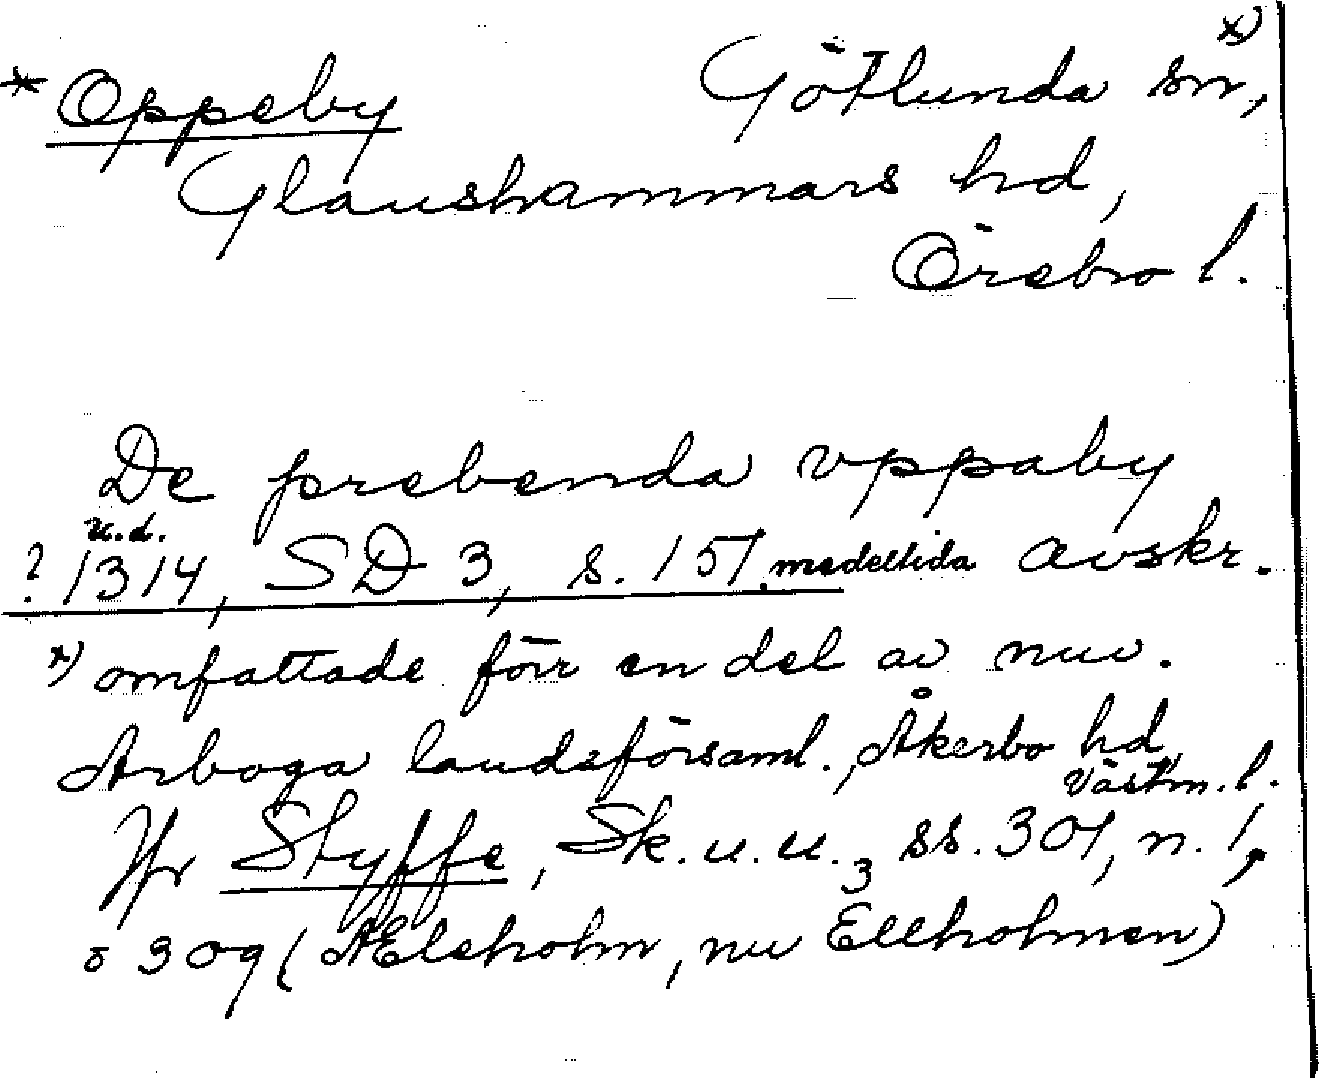 * Oppeby Götlunda sn, x)
Glanshammars hd,
Örebro l.
De prebenda vppaby
u.d.
? 1314, SD 3, s. 151. medeltida avskr.
x) omfattade förr en del av nuv.
Arboga landsförsaml., Åkerbo hd,
Västm. l.
Jfr Styffe, Sk.u.u.3 ss. 301, n. 1,
o 309 (Ælsholm, nu Ellholmen)